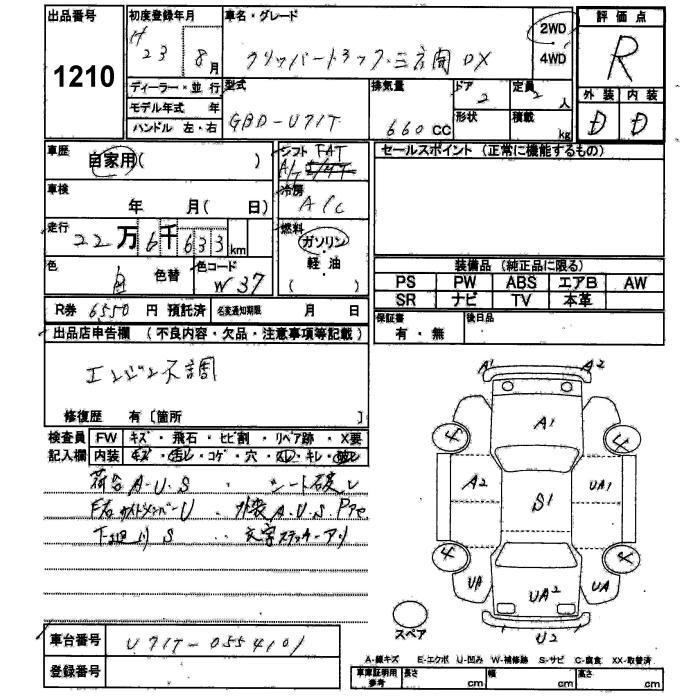 出品番号
1210
初度登録年月
H
23 8月
車名・グレード
クリッパートラック 三方開 DX
2WD
4WD
評価点
R
外装 内装
D D
ディーラー・並行
モデル年式 年
ハンドル 左・右
型式
GBD-U71T
排気量
660 CC
ドア
2
定員
2 人
形状
積載
kg
車歴
自家用( )
シフト FAT
A/T
車検
年 月( 日)
冷房
A/C
走行
22万6千633km
燃料
ガソリン
軽・油
( )
色
白
色替
色コード
W37
R券 6550 円 預託済
名変通知期限 月 日
セールスポイント (正常に機能するもの)
装備品 (純正品に限る)
PS PW ABS エアB AW
SR ナビ TV 本革
保証書
有・無
後日品
出品店申告欄 (不良内容・欠品・注意事項等記載)
エンジン不調
修復歴 有〔箇所 〕
検査員 FW キズ・飛石・ヒビ割・リペア跡・X要
記入欄 内装 キズ・汚レ・コゲ・穴・スレ・キレ・破レ
荷台 A・U・S ・シート破レ
U ・外装 A.U.S.
下回り S ・文字ステッカーアリ
A1 A2
4 A1 4
A2 S1 UA1
4 4
UA UA2 UA
U2
スペア
車台番号
U71T-0554101
登録番号
A-線キズ E-エクボ U-凹み W-補修跡 S-サビ C-腐食 XX-取替済
車庫証明用
参考
長さ cm
幅 cm
高さ cm